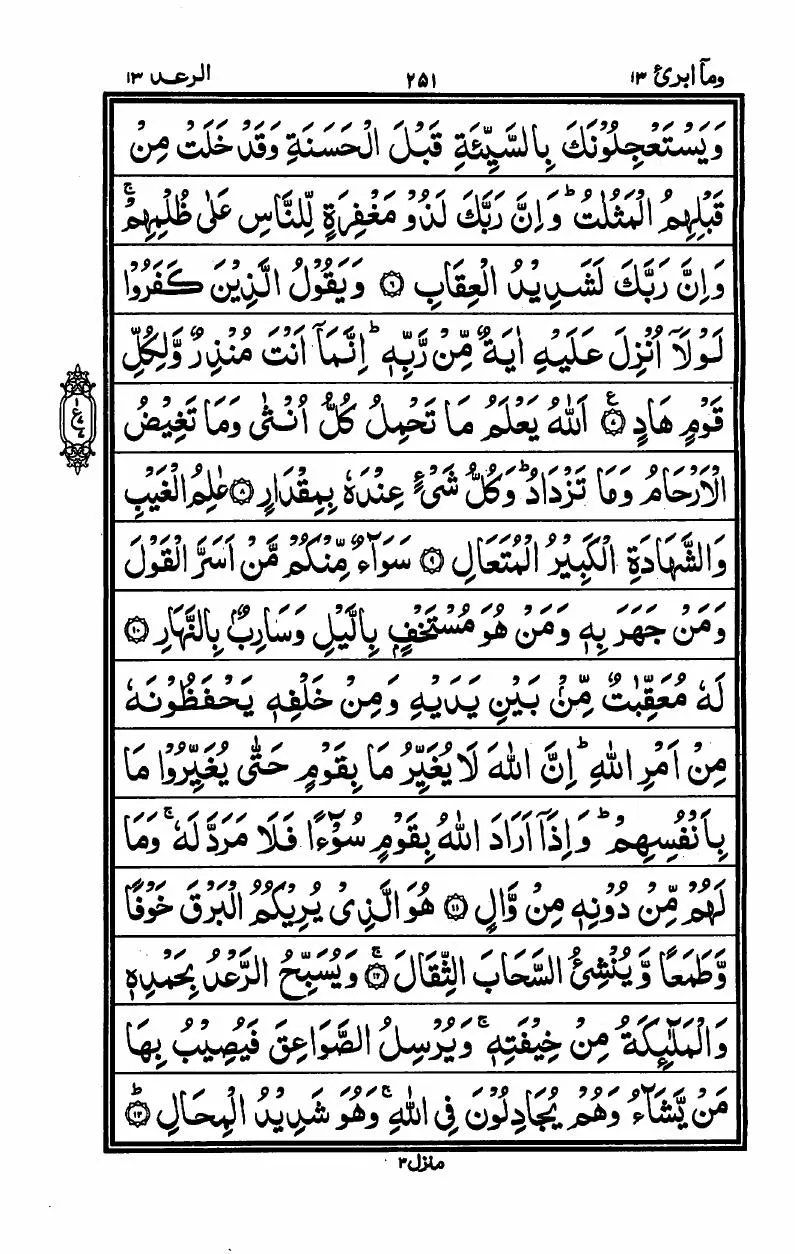 ومآ ابرئ ١٣ ٢٥١ الرعد ١٣
وَيَسْتَعْجِلُوْنَكَ بِالسَّيِّئَةِ قَبْلَ الْحَسَنَةِ وَقَدْ خَلَتْ مِنْ
قَبْلِهِمُ الْمَثُلٰتُ ؕ وَاِنَّ رَبَّكَ لَذُوْ مَغْفِرَةٍ لِّلنَّاسِ عَلٰى ظُلْمِهِمْ ۚ
وَاِنَّ رَبَّكَ لَشَدِيْدُ الْعِقَابِ ۝٦ وَيَقُوْلُ الَّذِيْنَ كَفَرُوْا
لَوْلَاۤ اُنْزِلَ عَلَيْهِ اٰيَةٌ مِّنْ رَّبِّهٖ ؕ اِنَّمَاۤ اَنْتَ مُنْذِرٌ وَّلِكُلِّ
قَوْمٍ هَادٍ ۝٧ ع اَللّٰهُ يَعْلَمُ مَا تَحْمِلُ كُلُّ اُنْثٰى وَمَا تَغِيْضُ
الْاَرْحَامُ وَمَا تَزْدَادُ ؕ وَكُلُّ شَيْءٍ عِنْدَهٗ بِمِقْدَارٍ ۝٨ عٰلِمُ الْغَيْبِ
وَالشَّهَادَةِ الْكَبِيْرُ الْمُتَعَالِ ۝٩ سَوَآءٌ مِّنْكُمْ مَّنْ اَسَرَّ الْقَوْلَ
وَمَنْ جَهَرَ بِهٖ وَمَنْ هُوَ مُسْتَخْفٍۭ بِالَّيْلِ وَسَارِبٌۢ بِالنَّهَارِ ۝١٠
لَهٗ مُعَقِّبٰتٌ مِّنْۢ بَيْنِ يَدَيْهِ وَمِنْ خَلْفِهٖ يَحْفَظُوْنَهٗ
مِنْ اَمْرِ اللّٰهِ ؕ اِنَّ اللّٰهَ لَا يُغَيِّرُ مَا بِقَوْمٍ حَتّٰى يُغَيِّرُوْا مَا
بِاَنْفُسِهِمْ ؕ وَاِذَاۤ اَرَادَ اللّٰهُ بِقَوْمٍ سُوْٓءًا فَلَا مَرَدَّ لَهٗ ۚ وَمَا
لَهُمْ مِّنْ دُوْنِهٖ مِنْ وَّالٍ ۝١١ هُوَ الَّذِيْ يُرِيْكُمُ الْبَرْقَ خَوْفًا
وَّطَمَعًا وَّيُنْشِئُ السَّحَابَ الثِّقَالَ ۝١٢ ۚ وَيُسَبِّحُ الرَّعْدُ بِحَمْدِهٖ
وَالْمَلٰٓئِكَةُ مِنْ خِيْفَتِهٖ ۚ وَيُرْسِلُ الصَّوَاعِقَ فَيُصِيْبُ بِهَا
مَنْ يَّشَآءُ وَهُمْ يُجَادِلُوْنَ فِى اللّٰهِ ۚ وَهُوَ شَدِيْدُ الْمِحَالِ ۝١٣ ؕ
منزل ٣